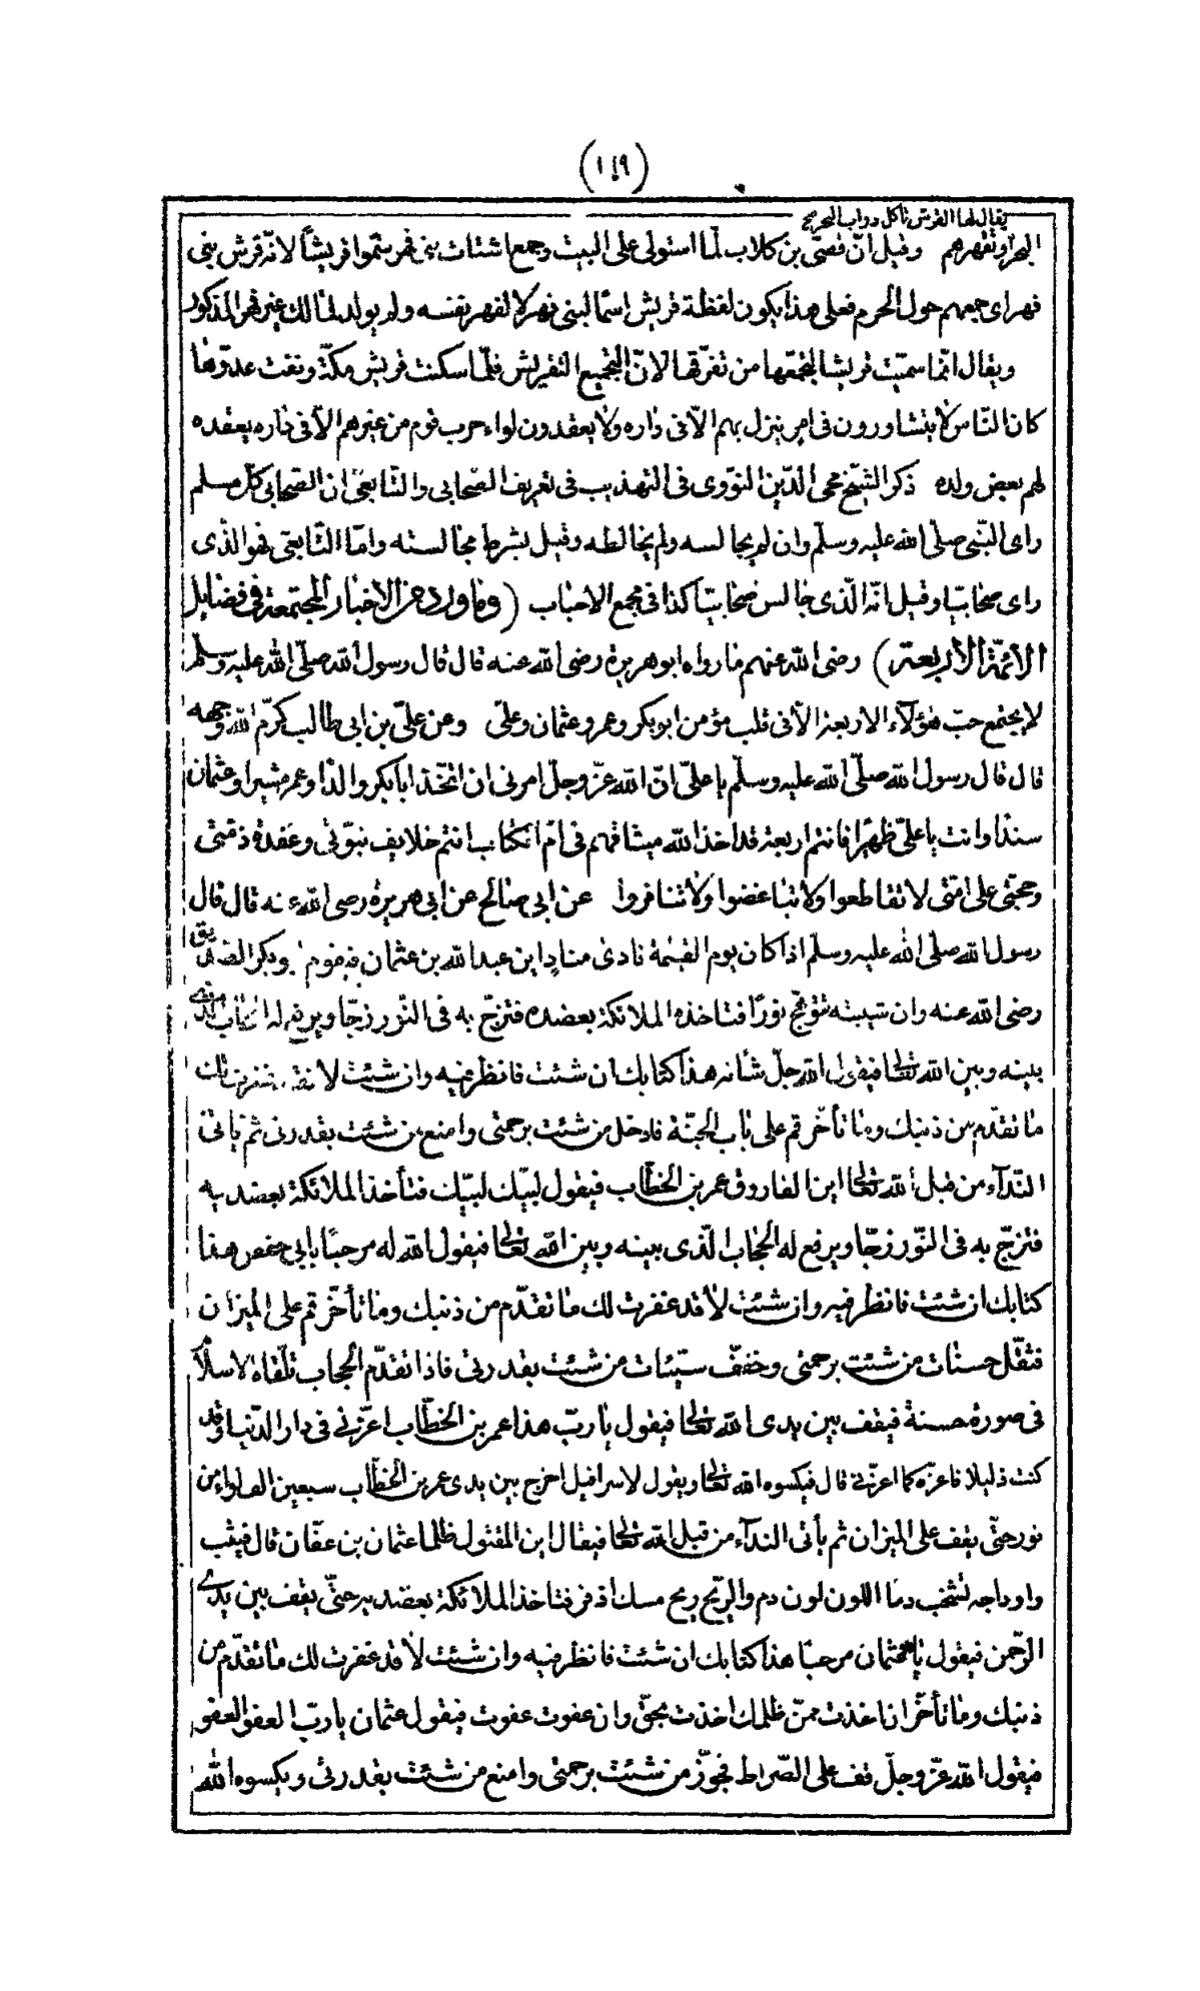 (١١٩)
يقال لها القرش تأكل دواب البحر
البحر وتقهرهم وقيل انّ قصىّ بن كلاب لمّا استولى على البيت وجمع اشتات بنى فهر سمّوا قريشًا لانّه قرش بنى
فهر اى جمعهم حول الحرم فعلى هذا يكون لفظة قريش اسمًا لبنى فهر لا لفهر نفسه ولم يولد لمالك غير فهر المذكور
ويقال انّما سمّيت قريشا لتجمّعها من تفرّقها لانّ التجميع التقريش فلمّا سكنت قريش مكّة ونفت عدوّها
كان النّاس لا يتشاورون فى امر ينزل بهم الّا فى داره ولا يعقدون لواء حرب قوم من غيرهم الّا فى داره يعقده
لهم بعض ولده ذكر الشّيخ محى الدّين النّووى فى التهذيب فى تعريف الصّحابى والتّابعىّ ان الصّحابى كلّ مسلم
راى النّبى صلّى الله عليه وسلّم وان لم يجالسه ولم يخالطه وقيل بشرط مجالسته وامّا التّابعى فهو الذى
راى صحابيّا وقيل انّه الّذى جالس صحابيّا كذا فى مجمع الاحباب (وما ورد من الاخبار المجتمعة فى فضايل
الائمّة الاربعة) رضى الله عنهم ما رواه ابوهريرة رضى الله عنه قال قال رسول الله صلّى الله عليه وسلّم
لا يجتمع حبّ هؤلآء الاربعة الّا فى قلب مؤمن ابوبكر وعمر وعثمان وعلىّ وعن علىّ بن ابى طالب كرّم الله وجهه
قال قال رسول الله صلّى الله عليه وسلّم يا علىّ انّ الله عزّ وجلّ امرنى ان اتّخذ ابابكر والدًا وعمر مشيرا وعثمان
سندا وانت يا علىّ ظهرًا فانتم اربعة قد اخذ الله ميثاقهم فى امّ الكتاب انتم خلايف نبوّتى وعقدة ذمّتى
وحجّتى على امّتى لا تقاطعوا ولا تباغضوا ولا تنافروا عن ابى صالح عن ابى هريرة رضى الله عنه قال قال
رسول الله صلّى الله عليه وسلّم اذا كان يوم القيمة نادى منادٍ اين عبدالله بن عثمان فيقوم ابوبكر الصّدّيق
رضى الله عنه وان شيبته تتوهّج نورًا فتاخذه الملائكة بعضده فتزجّ به فى النّور زجّا ويرفع له الحجاب الّذى
بينه وبين الله تعالى فيقول الله جلّ شأنه هذا كتابك ان شئت فانظر فيه وان شئت لا فقد غفرت لك
ما تقدّم من ذنبك وما تأخّر قم على باب الجنّة فادخل من شئت برحمتى وامنع من شئت بقدرتى ثم يأتى
النّدآء من قبل الله تعالى اين الفاروق عمر بن الخطّاب فيقول لبّيك لبّيك فتأخذ الملائكة بعضديه
فتزجّ به فى النّور زجّا ويرفع له الحجاب الّذى بينه وبين الله تعالى فيقول الله له مرحبًا بابى حفص هذا
كتابك ان شئت فانظر فيه وان شئت لا قد غفرت لك ما تقدّم من ذنبك وما تأخّر قم على الميزان
فثقّل حسنات من شئت برحمتى وخفّف سيّئات من شئت بقدرتى فاذا تقدّم الحجاب تلقّاه الاسلام
فى صورة حسنة فيقف بين يدى الله تعالى فيقول يا ربّ هذا عمر بن الخطّاب اعزّنى فى دار الدّنيا وقد
كنت ذليلا فاعزّه كما اعزّنى قال فيكسوه الله تعالى ويقول لاسرافيل اخرج بين يدى عمر بن الخطّاب سبعين الف لواء من
نور حتّى يقف على الميزان ثم يأتى الندآء من قبل الله تعالى فيقال اين المقتول ظلما عثمان بن عفّان قال فيثب
واوداجه تشخب دمًا اللون لون دم والرّيح ريح مسك اذفر فتاخذ الملائكة بعضديه حتّى يقف بين يدى
الرّحمن فيقول يا عثمان مرحبًا هذا كتابك ان شئت فانظر فيه وان شئت لا قد غفرت لك ما تقدّم من
ذنبك وما تأخّر ان اخذت ممّن ظلمك اخذت بحقّ وان عفوت عفوت فيقول عثمان يا ربّ العفو العفو
فيقول الله عزّ وجلّ قف على الصّراط فجوّز من شئت برحمتى وامنع من شئت بقدرتى ويكسوه الله